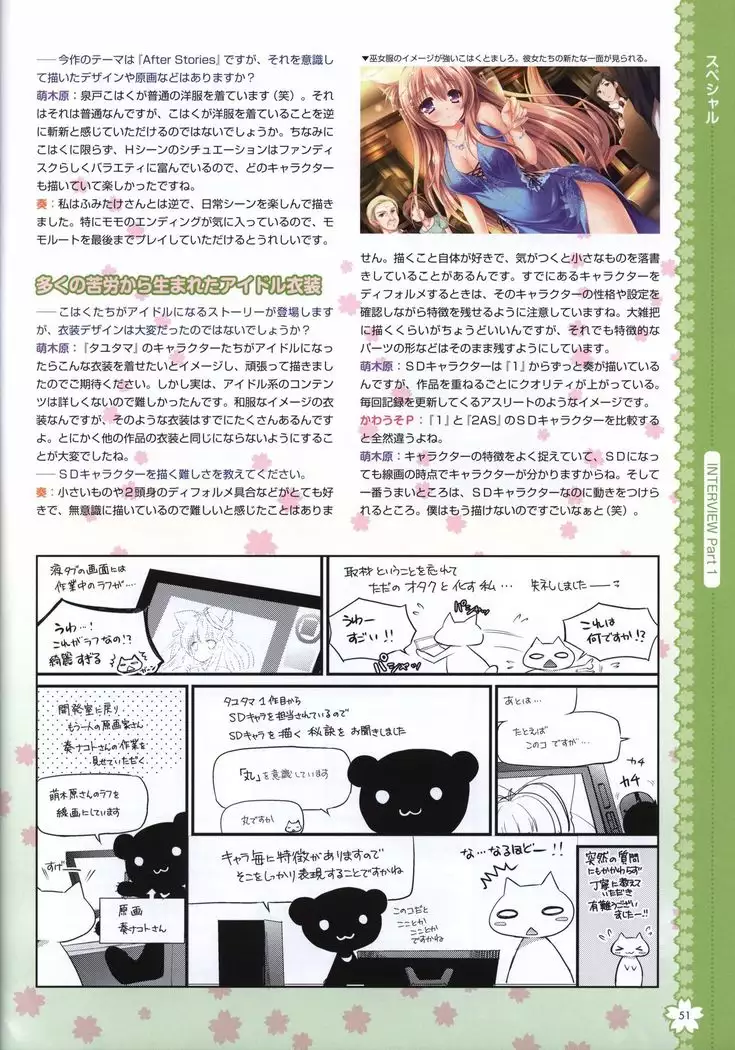 ――今作のテーマは『After Stories』ですが、それを意識し
て描いたデザインや原画などはありますか？
萌木原：泉戸こはくが普通の洋服を着ています（笑）。それ
はそれは普通なんですが、こはくが洋服を着ていることを逆
に斬新と感じていただけるのではないでしょうか。ちなみに
こはくに限らず、Hシーンのシチュエーションはファンディ
スクらしくバラエティに富んでいるので、どのキャラクター
も描いていて楽しかったですね。
奏：私はふみたけさんとは逆で、日常シーンを楽しんで描き
ました。特にモモのエンディングが気に入っているので、モ
モルートを最後までプレイしていただけるとうれしいです。
多くの苦労から生まれたアイドル衣装
――こはくたちがアイドルになるストーリーが登場します
が、衣装デザインは大変だったのではないでしょうか？
萌木原：『タユタマ』のキャラクターたちがアイドルになっ
たらこんな衣装を着せたいとイメージし、頑張って描きまし
たのでご期待ください。しかし実は、アイドル系のコンテン
ツは詳しくないので難しかったんです。和服なイメージの衣
装なんですが、そのような衣装はすでにたくさんあるんです
よ。とにかく他の作品の衣装と同じにならないようにするこ
とが大変でしたね。
――SDキャラクターを描く難しさを教えてください。
奏：小さいものや２頭身のディフォルメ具合などがとても好
きで、無意識に描いているので難しいと感じたことはありま
▼巫女服のイメージが強いこはくとましろ。彼女たちの新たな一面が見られる。
せん。描くこと自体が好きで、気がつくと小さなものを落書
きしていることがあるんです。すでにあるキャラクターを
ディフォルメするときは、そのキャラクターの性格や設定を
確認しながら特徴を残せるように注意していますね。大雑把
に描くくらいがちょうどいいんですが、それでも特徴的な
パーツの形などはそのまま残すようにしています。
萌木原：SDキャラクターは『１』からずっと奏が描いている
んですが、作品を重ねるごとにクオリティが上がっている。
毎回記録を更新してくるアスリートのようなイメージです。
かわうそP：『１』と『2AS』のSDキャラクターを比較すると
全然違うよね。
萌木原：キャラクターの特徴をよく捉えていて、SDになって
も線画の時点でキャラクターが分かりますからね。そして
一番うまいところは、SDキャラクターなのに動きをつけら
れるところ。僕はもう描けないのですごいなぁと（笑）。
スペシャル
INTERVIEW Part 1
液タブの画面には
作業中のラフが…
うわ…！
これがラフなの!?
綺麗すぎる
ガーン
取材ということを忘れて
ただのオタクと化す私… 失礼しました――
うわー
すごい!!
パシャッ
パシャッ
これは
何ですか!?
開発室に戻り
もう一人の原画家さん
奏ナコトさんの作業を
見せていただく
萌木原さんのラフを
線画にしています
すげー
原画
奏ナコトさん
タユタマ１作目から
SDキャラを担当されているので
SDキャラを描く秘訣をお聞きしました
「丸」を意識しています
丸ですか
あとは…
たとえば
このコですが…
カキ
カキ
キャラ毎に特徴がありますので
そこをしっかり表現することですかね
このコだと
こことか
こことか
ですかね
な…なるほどー!!
突然の質問
にもかかわらず
丁寧に教えて
いただき
有難うござい
ましたー!!
51